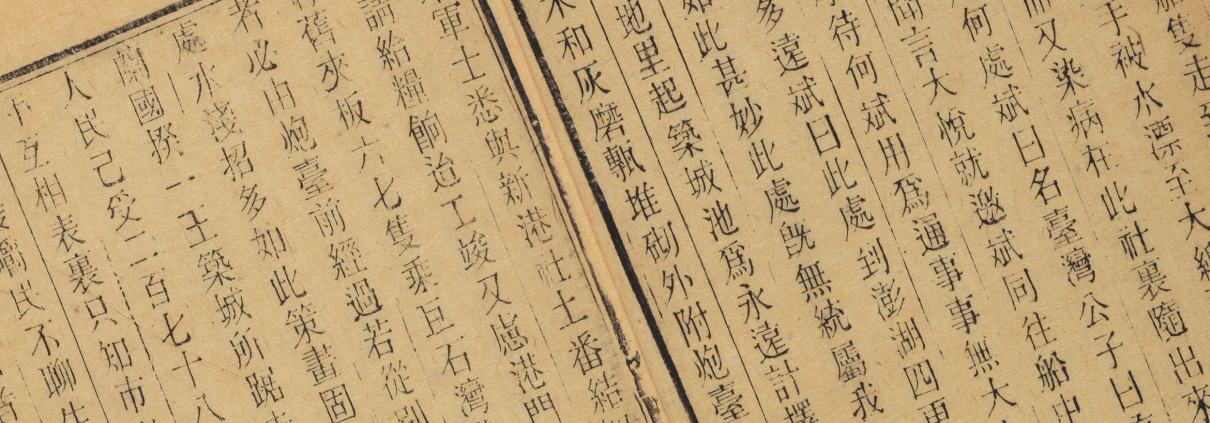 隻走
手被水漂至大
又染病在此社裏隨出來
何處斌曰名臺灣公子曰
言大悅就邀斌同往船中
待何斌用爲通事事無大
多遠斌曰此處到澎湖四更
如此甚妙此處旣無統屬我
地里起築城池爲永遠計擇
米和灰磨甎堆砌外附炮臺
軍士悉與新港社土番結
請給糧餉迨工竣又慮港門
舊夾板六七隻乘巨石灣
若必由炮臺前經過若從別
處水淺招多如此策畫固
國揆一王築城所踞
人民已受二百七十八
互相表裏只知市
民不聊生